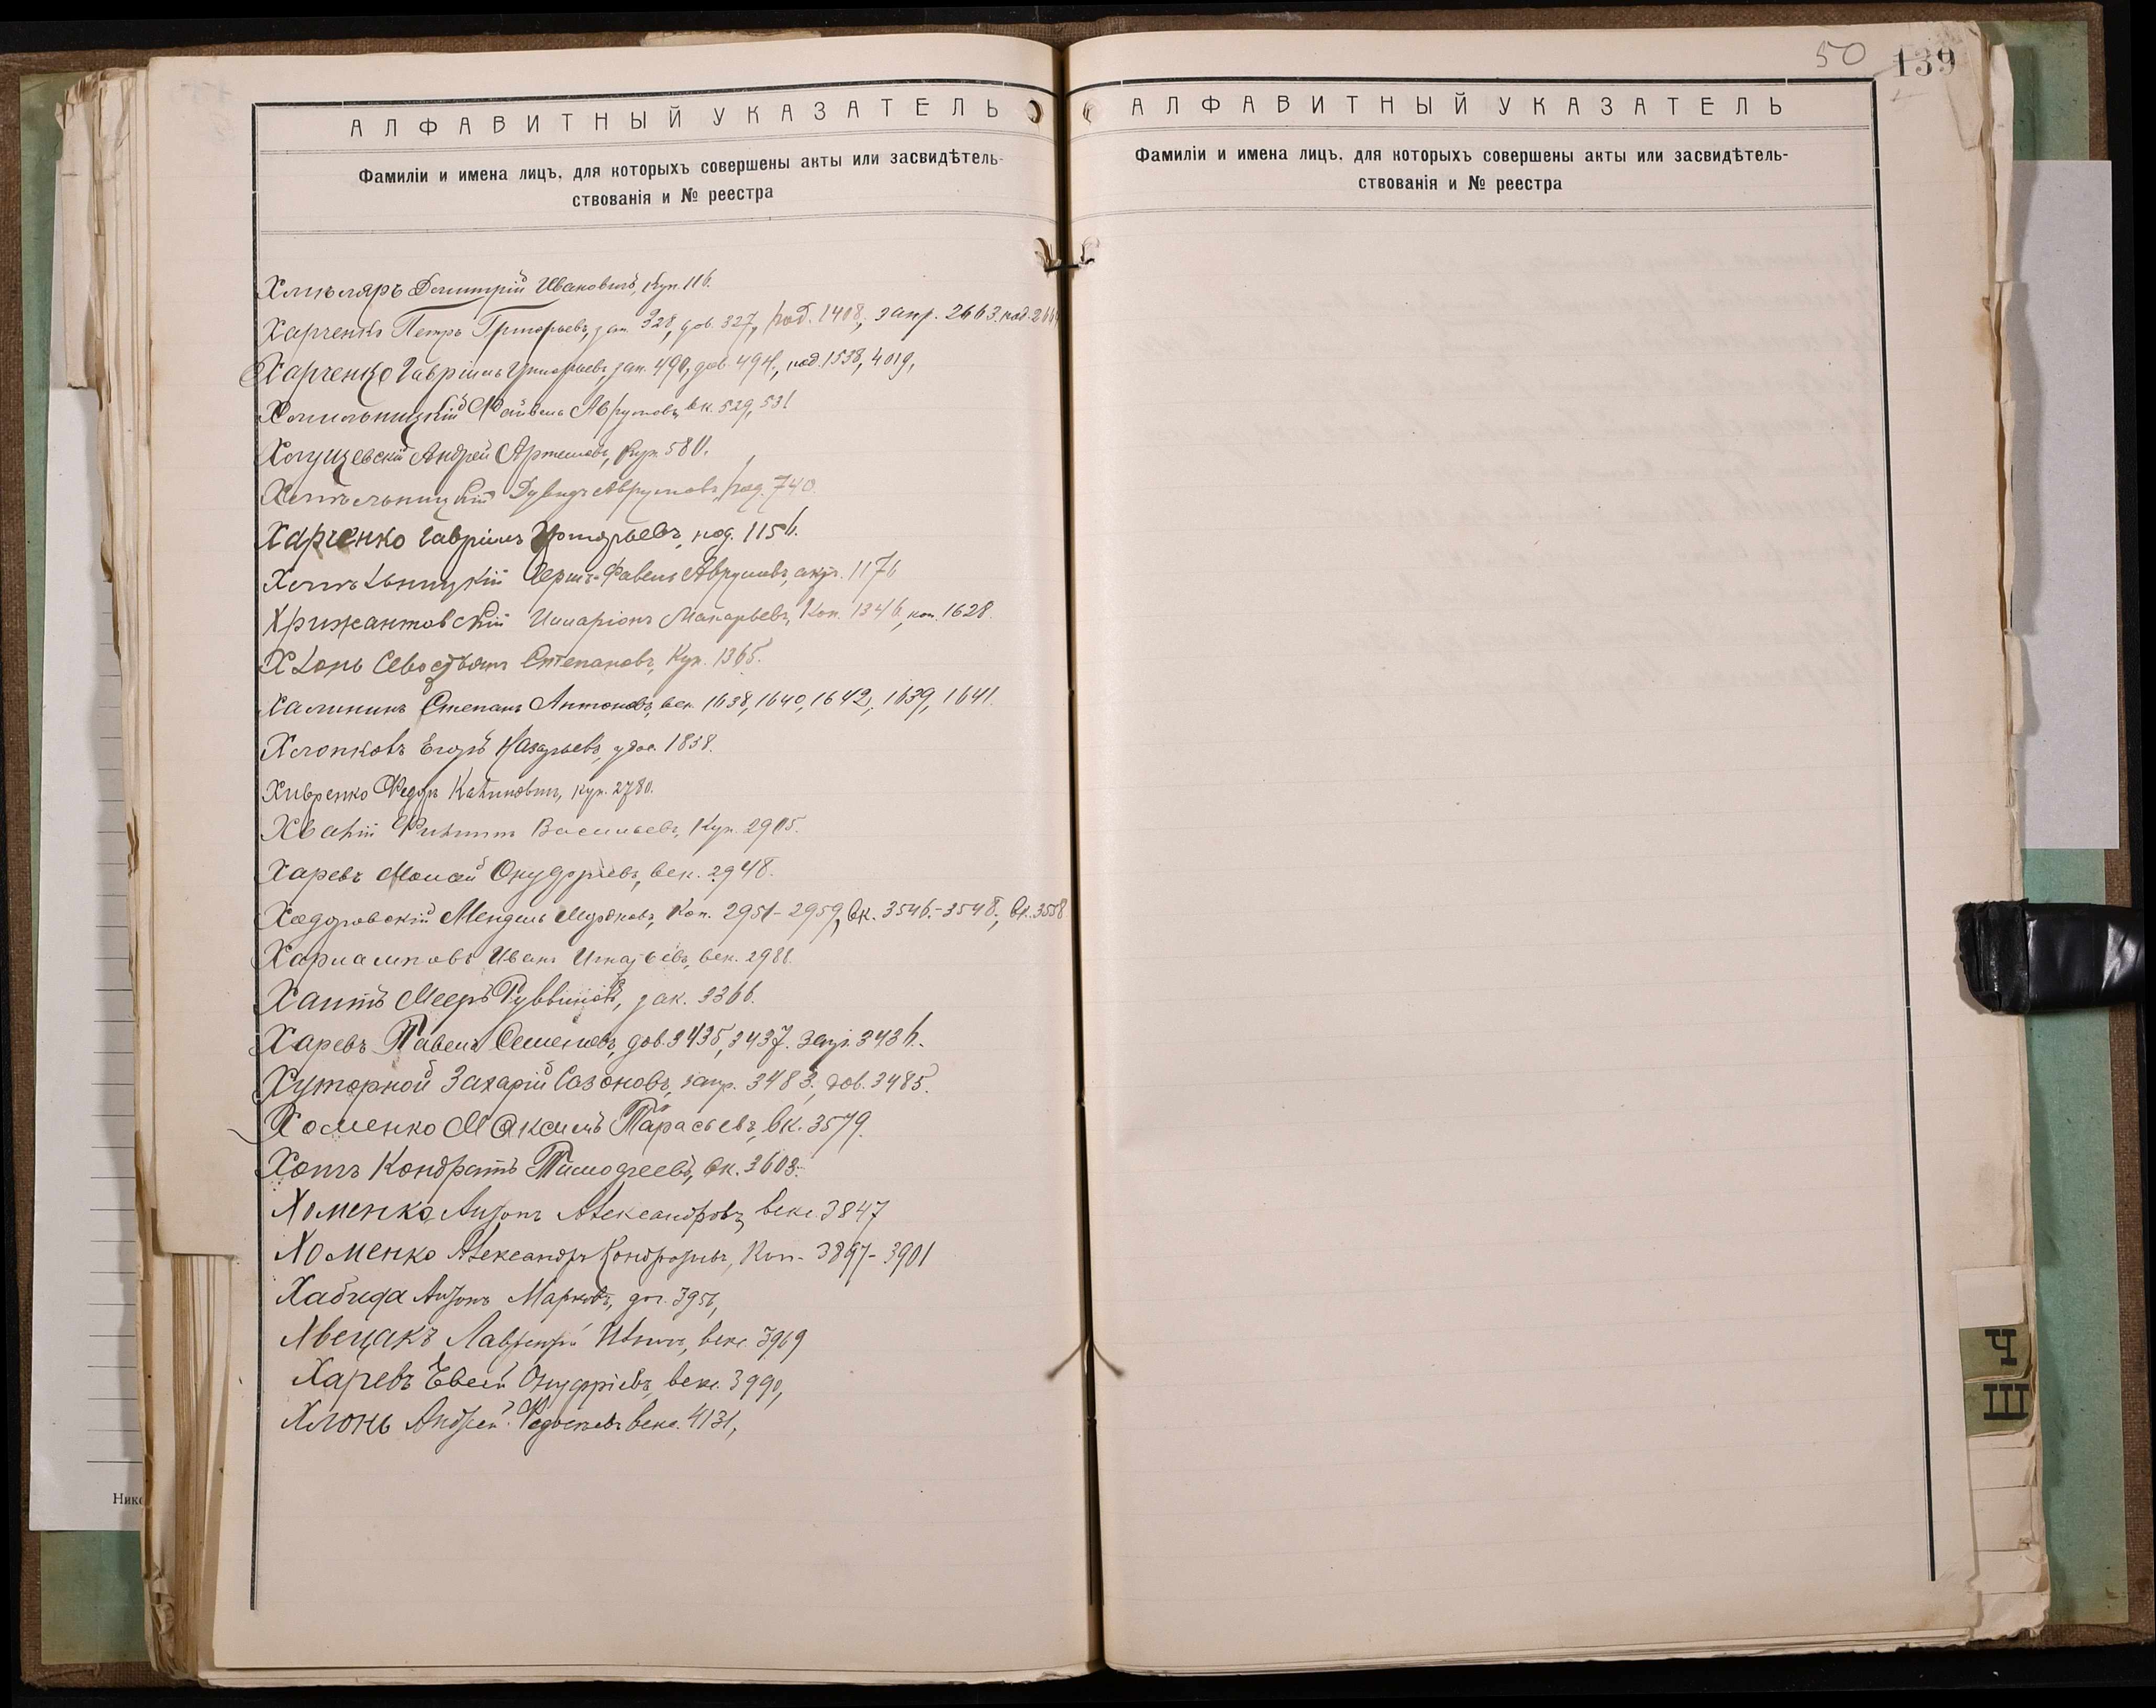 АЛФАВИТНЫЙ УКАЗАТЕЛЬ
Фамиліи и имена лицъ, для которыхъ совершены акты или засвидѣтель-
ствованія и № реестра
Димитрій Ивановичъ, куп. 116.
Харченко Петръ Григорьевъ, зап. 328, дов. 327, под. 1408, запр. 2663. под.
Харченко Гавріилъ Григорьевъ, зап. 490, дов. 494, под. 1538, 4019,
Хмильницкій Файвель Аврумовъ, вк. 529, 531
Андрей Артемовъ, куп. 580.
Хмельницкій Дувидъ Аврумовъ, под. 740.
Харченко Гавріилъ Григорьевъ, под. 1156.
Хмельницкій Аврумовъ, 1176
Хрижантовскій Илларіонъ Макарьевъ, коп. 1346, коп. 1628.
Хлонь Севостьянъ Степановъ, куп. 1365.
Халининъ Степанъ Антоновъ, век. 1638, 1640, 1642, 1639, 1641.
Хлопковъ Егоръ Назарьевъ, 1838.
Хивренко Федоръ куп. 2780.
Филиппъ Васильевъ, куп. 2905.
Харевъ Онуфріевъ, век. 2948.
Мендель коп. 2951-2959, вк. 3546.-3548., вк. 3558
Харлампов Иванъ Игнатьевъ, век. 2988.
Хаитъ Мееръ Руввиновъ, зак. 3366.
Харевъ Павелъ Семеновъ, дов. 3435, 3437. запр. 3436.
Хуторной Захарій Сазоновъ, запр. 3483., дов. 3485.
Хоменко Максимъ Тарасьевъ, вк. 3579.
Кондратъ Тимофеевъ, вк. 3603.
Хоменко Антонъ Александровъ, векс. 3847
Хоменко Александръ Кондратьевъ, коп. 3897-3901
Хабида Антонъ Марковъ, 3951,
Хвецакъ Лаврентій векс. 3969
Харевъ Евсей Онуфріевъ, векс. 3990,
Хлонь Андрей векс. 4131,
50 139
АЛФАВИТНЫЙ УКАЗАТЕЛЬ
Фамиліи и имена лицъ, для которыхъ совершены акты или засвидѣтель-
ствованія и № реестра
Ч
Ш
Нико